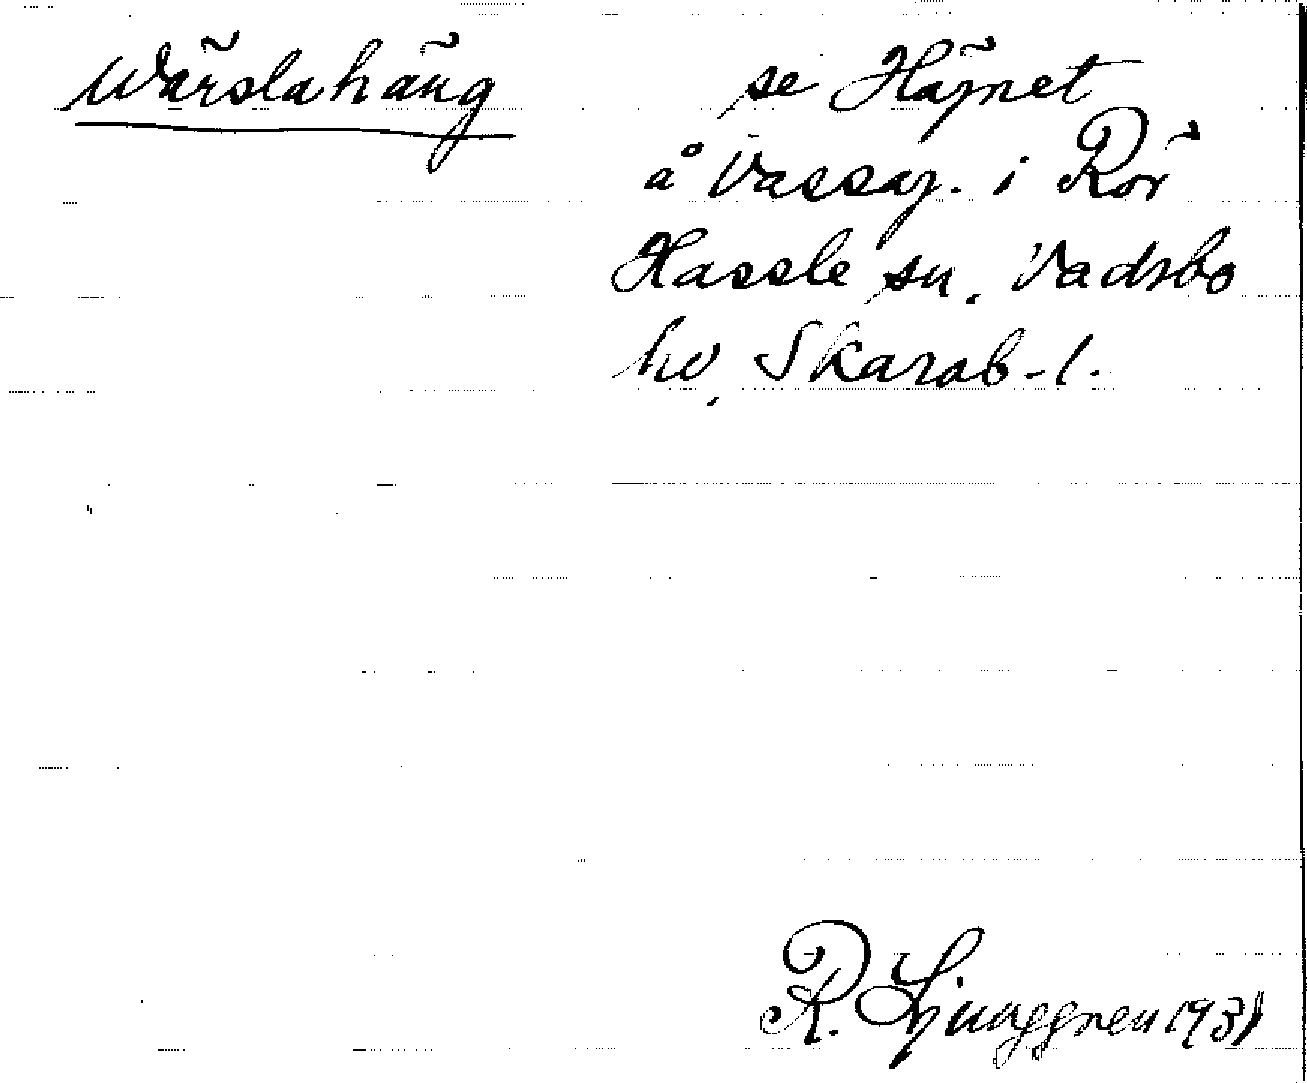 Wärslahäng
se Häjnet
å Vassag. i Rör
Hassle sn, Vadsbo
hd, Skarab-l.
R. Ljunggren 1931